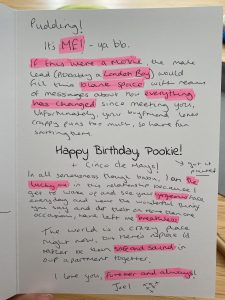 Pudding!
It's ME! - ya bb.
If this were a movie, the male
lead (probably a London Boy) would
fill this blank space with reams
of messages about how everything
has changed since meeting you,
Unfortunately, your boyfriend loves
crappy puns too much, so have fun
surviving them.
Happy Birthday Pookie!
+ Cinco de Mayo!
In all seriousness though bubba, I am the
lucky one in this relationship because I
get to wake up and see your gorgeous face
everyday and hear the wonderful, funny
you say and do that on more than one
occasion, have left me breathless.
The world is a crazy place
right now, but there's nowhere I'd
rather be than safe and sound in
our apartment together.
I love you, forever and always!
Joel